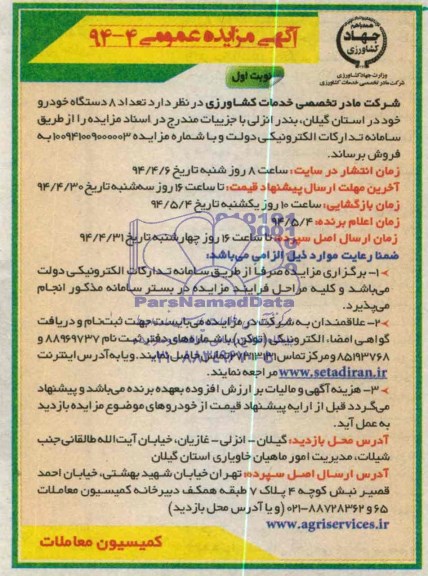 آگهی مزایده عمومی ۴-۹۴
همه با هم
جهاد
کشاورزی
وزارت جهاد کشاورزی
شرکت مادر تخصصی خدمات کشاورزی
نوبت اول
شرکت مادر تخصصی خدمات کشاورزی در نظر دارد تعداد ۸ دستگاه خودرو
خود در استان گیلان، بندر انزلی با جزییات مندرج در اسناد مزایده را از طریق
سامانه تدارکات الکترونیکی دولت و با شماره مزایده ۱۰۰۹۴۱۰۰۹۰۰۰۰۰۳ به
فروش برساند.
زمان انتشار در سایت: ساعت ۸ روز شنبه تاریخ ۹۴/۴/۶
آخرین مهلت ارسال پیشنهاد قیمت: تا ساعت ۱۶ روز سه‌شنبه تاریخ ۹۴/۴/۳۰
زمان بازگشایی: ساعت ۱۰ روز یکشنبه تاریخ ۹۴/۵/۴
زمان اعلام برنده: ۹۴/۵/۴
زمان ارسال اصل سپرده: تا ساعت ۱۶ روز چهارشنبه تاریخ ۹۴/۴/۳۱
ضمنا رعایت موارد ذیل الزامی می‌باشد:
۱- برگزاری مزایده صرفا از طریق سامانه تدارکات الکترونیکی دولت
می‌باشد و کلیه مراحل فرایند مزایده در بستر سامانه مذکور انجام
می‌پذیرد.
ParsNamadData
۲- علاقمندان به شرکت در مزایده می‌بایست جهت ثبت‌نام و دریافت
گواهی امضاء الکترونیکی (توکن) با شماره‌های دفتر ثبت نام ۸۸۹۶۹۷۳۷ و
۸۵۱۹۳۷۶۸ و مرکز تماس حاصل نمایند. و یا به آدرس اینترنت
www.setadiran.ir مراجعه نمایند.
۳- هزینه آگهی و مالیات بر ارزش افزوده بعهده برنده می‌باشد و پیشنهاد
می‌گردد قبل از ارایه پیشنهاد قیمت از خودروهای موضوع مزایده بازدید
به عمل آید.
آدرس محل بازدید: گیلان - انزلی - غازیان، خیابان آیت‌الله طالقانی جنب
شیلات، مدیریت امور ماهیان خاویاری استان گیلان
آدرس ارسال اصل سپرده: تهران خیابان شهید بهشتی، خیابان احمد
قصیر نبش کوچه ۴ پلاک ۷ طبقه همکف دبیرخانه کمیسیون معاملات
۶۵ و ۸۸۷۲۸۳۶۲-۰۲۱ (و یا آدرس محل بازدید)
www.agriservices.ir
کمیسیون معاملات